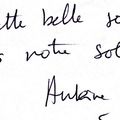 tte belle so
s notre sol
Antoine